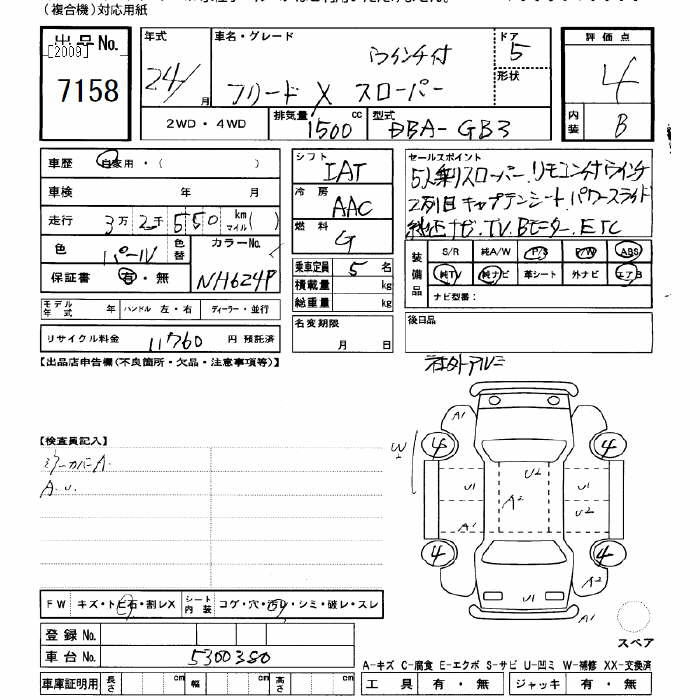 (複合機)対応用紙
出品No. [2009] 7158
年式 24/ 月
車名・グレード ウインチ付
フリード X スローパー
ドア 5
形状
2WD・4WD 排気量 1500 cc 型式 DBA-GB3
評価点 4
内装 B
車歴 自家用・( )
車検 年 月
走行 3万2千550 km マイル( )
色 パール 色替 カラーNo. NH624P
保証書 有・無
モデル年式 年 ハンドル 左・右 ディーラー・並行
リサイクル料金 11760 円 預託済
シフト IAT
冷房 AAC
燃料 G
乗車定員 5 名
積載量 kg
総重量 kg
名変期限 月 日
セールスポイント
5人乗りスローパー.リモコン付ウインチ
2列目キャプテンシート.パワースライド
純正ナビ.TV.Bモニター.ETC
装備品 S/R 純A/W P/S P/W ABS
純TV 純ナビ 革シート 外ナビ エアB
ナビ型番:
後日品
【出品店申告欄(不良箇所・欠品・注意事項等)】
社外アルミ
【検査員記入】
ミラーカバーA.
A.U.
A1
4 4
U2
U1 A2 U2
A1
4 4
A2
U1
スペア
FW キズ・トビ石・割レX シート内装 コゲ・穴・汚レ・シミ・破レ・スレ
登録No.
車台No. 5300350
車庫証明用 長さ cm 幅 cm 高さ cm
A-キズ C-腐食 E-エクボ S-サビ U-凹ミ W-補修 XX-交換済
工具 有・無 ジャッキ 有・無